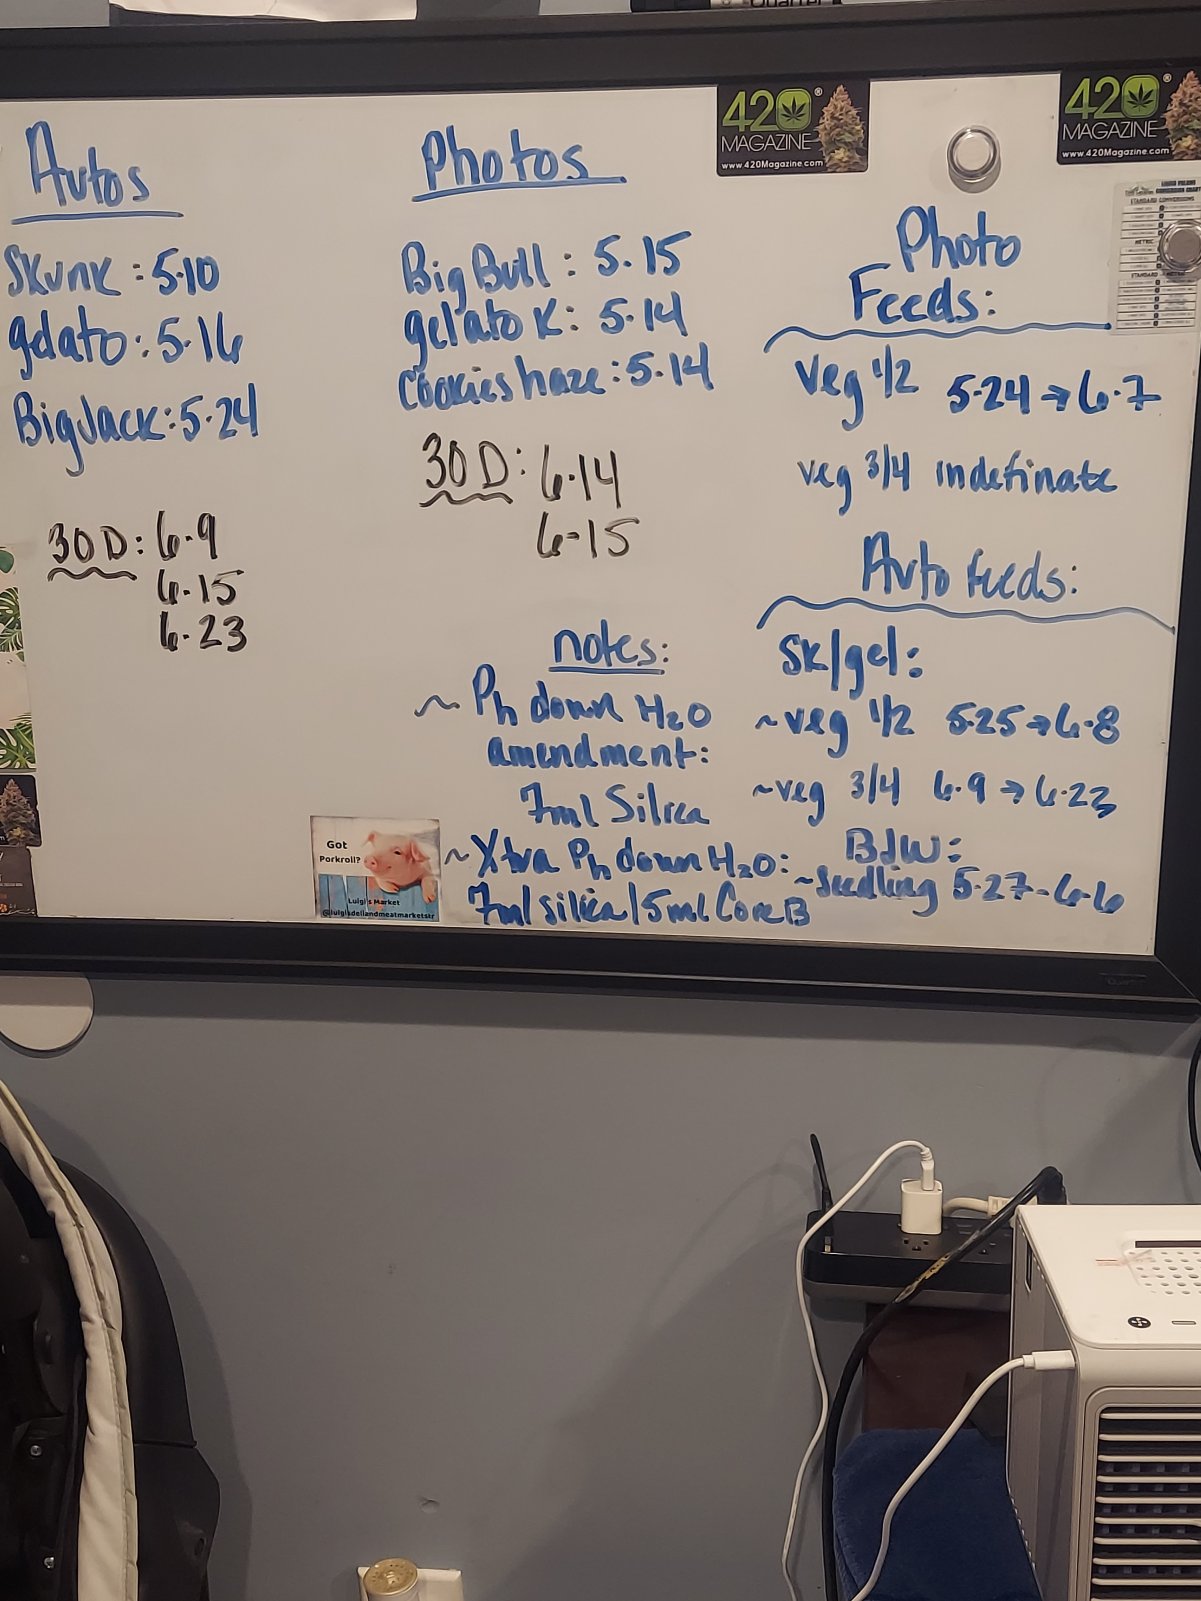 Autos
Skunk: 5.10
gelato: 5.16
BigJack: 5.24
30 D: 6.9
6.15
6.23
Photos
Big Bull: 5.15
gelato K: 5.14
Cookies haze: 5.14
30 D: 6.14
6-15
notes:
~ Ph down H2O
amendment:
7ml Silica
~ Xtra Ph down H2O:
7ml silica/5ml Core B
Got
Porkroll?
Luigi's Market
@luigisdeliandmeatmarketstr
420®
MAGAZINE
www.420Magazine.com
420®
MAGAZINE
www.420Magazine.com
STANDARD CONVERSIONS
METRIC
Photo
Feeds:
Veg 1/2 5.24 → 6.7
veg 3/4 indefinate
Auto feeds:
Sk/gel:
~veg 1/2 5.25 → 6.8
~veg 3/4 6.9 → 6.23
BJW:
~Seedling 5.27-6.6
Quartet